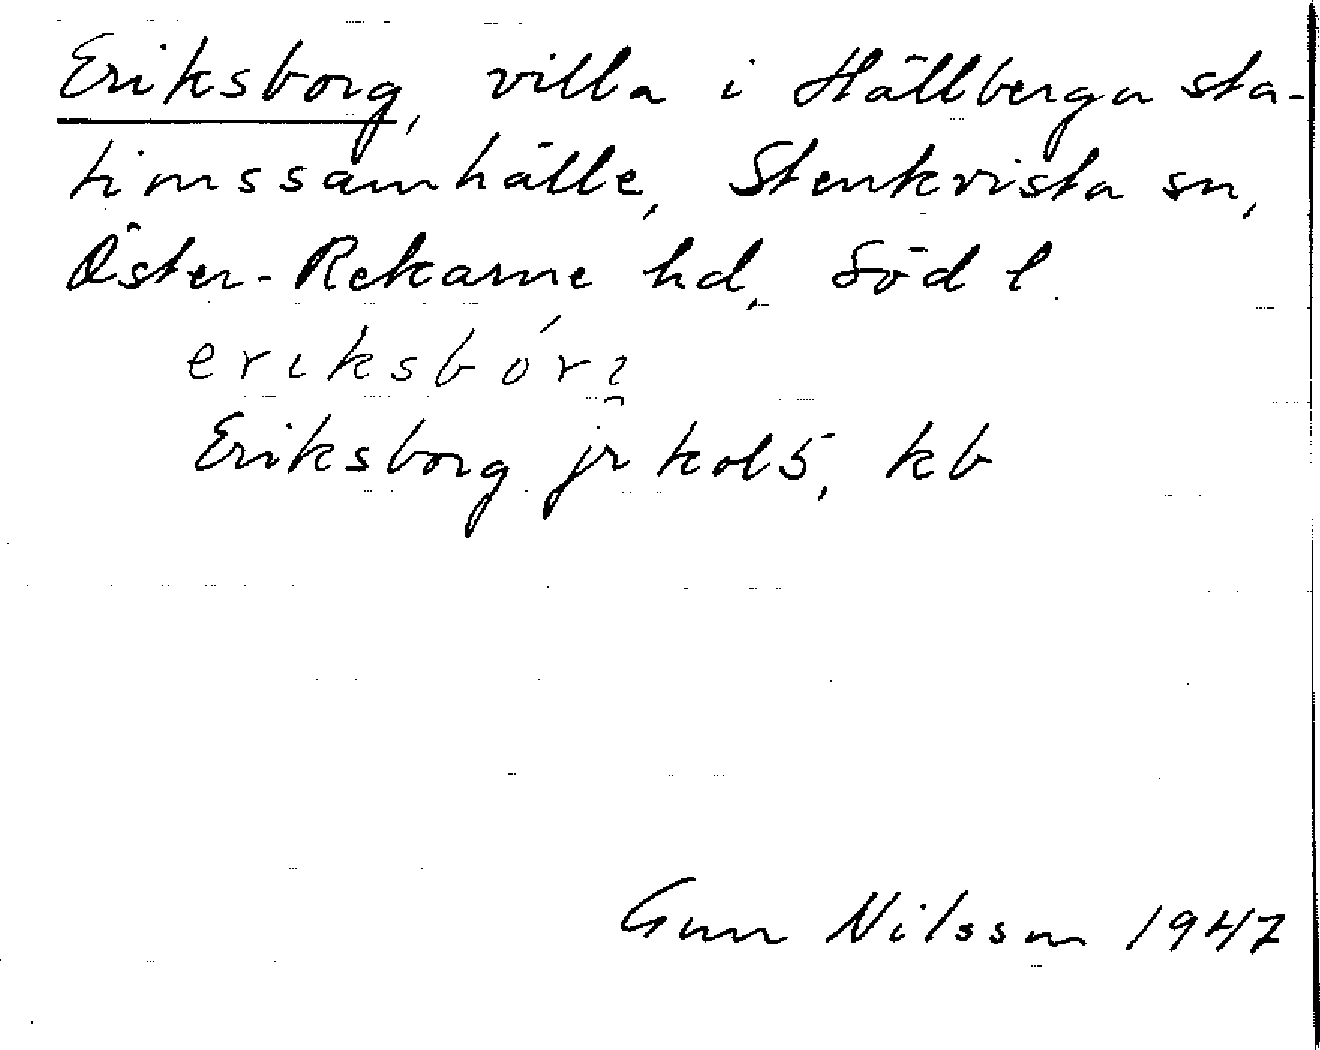 Eriksborg, villa i Hällberga sta-
tionssamhälle, Stenkvista sn,
Öster-Rekarne hd, Söd l.
Eriksborg jr kol 5, kb
Gun Nilsson 1947